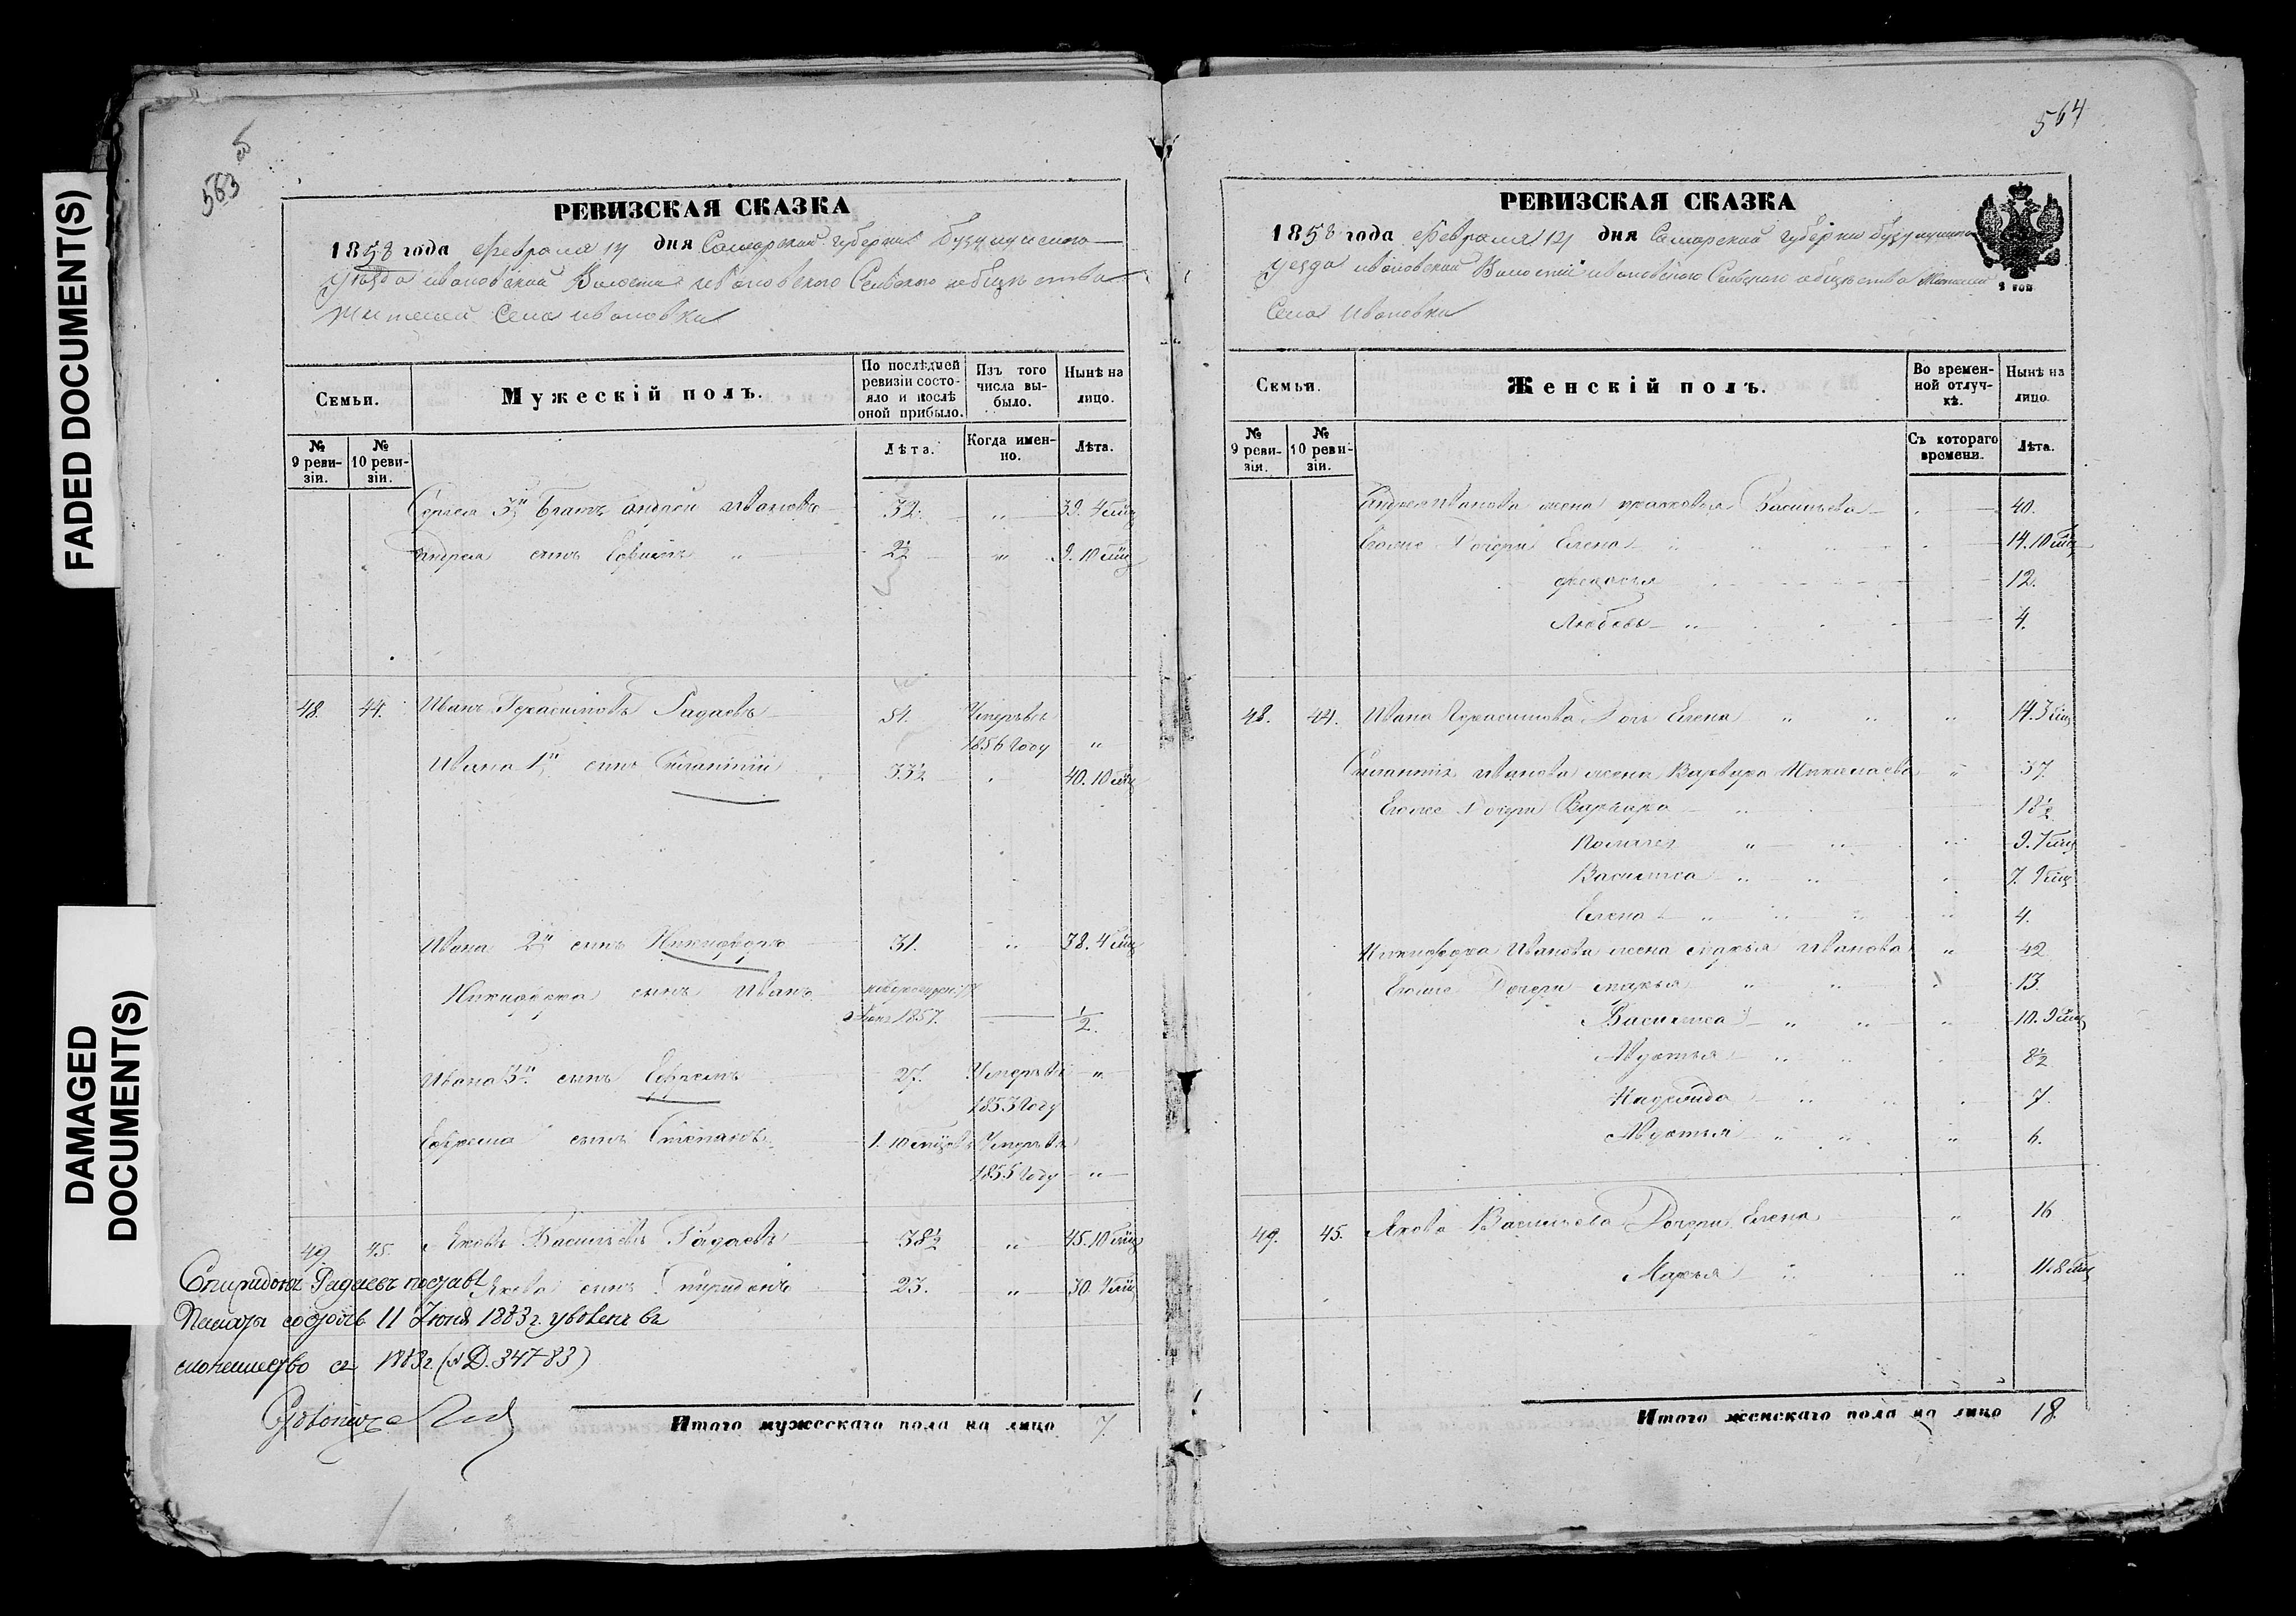 FADED DOCUMENT(S)
DAMAGED
DOCUMENT(S)
563 б
РЕВИЗСКАЯ СКАЗКА
1858 года Февраля 14 дня Самарской губернии Бузулукскаго
уезда Ивановской Волости Ивановского Сельского общества
Жителей Села Ивановки
Семьи.
Мужескій полъ.
По послѣдней ревизіи состояло и послѣ оной прибыло.
Изъ того числа выбыло.
Нынѣ на лицо.
№ 9 ревизіи.
№ 10 ревизіи.
Лѣта.
Когда именно.
Лѣта.
Сергея 3й братъ Андрей Ивановъ 32. " 39. 4 мѣц
Андрея сынъ Ефимъ " 2½ " 9. 10 мѣц
48. 44. Иванъ Герасимовъ Радаевъ 51. Умеръ въ
1856 году "
Ивана 1й сынъ 33½ 40. 10 мѣц
Ивана 2й сынъ Никифоръ 31. " 38. 4 мѣц
Никифора сынъ Иванъ
1857. ½.
Ивана 3й сынъ Ефремъ 27. Умеръ въ "
1853 году
Ефрема сынъ Степанъ 1. 10 мѣцовъ Умеръ въ
1855 году "
49 45. Яковъ Васильевъ Радаевъ 38½ " 45. 10 мѣц
Якова сынъ Спиридонъ 23. " 30. 4 мѣц
Спиридонъ Радаевъ
11 Июня 1883 г. уволенъ въ
1883 г. (Д. 347-83)
Итого мужескаго пола на лицо 7
564
РЕВИЗСКАЯ СКАЗКА
1858 года Февраля 14 дня Самарской губернии Бузулукскаго
уезда Ивановской Волости Ивановского Сельского общества Жителей
Села Ивановки
Семьи.
Женскій полъ.
Во временной отлучкѣ.
Нынѣ на лицо.
№ 9 ревизія.
№ 10 ревизіи.
Съ котораго времени.
Лѣта.
Андрея Иванова жена Прасковья Васильева 40.
Егоже Дочери Елена 14. 10 мѣц
12.
Любовь " 4.
48. 44. Ивана Герасимова Дочь Елена " " 14. 3 мѣц
Иванова жена Варвара Николаева " 37.
Егоже Дочери Варвара 18½
Пелагея " 9. 7 мѣц
Василиса 7. 9 мѣц
Елена 4.
Никифора Иванова жена Марья Иванова " 42
Егоже Дочери Марья " 13.
Василиса " 10. 9 мѣц
Авдотья 8½
Надежда 7.
Авдотья " 6.
49. 45. Якова Васильева Дочери Елена " 16
Марья " 11. 8 мѣц
Итого женскаго пола на лицо 18.